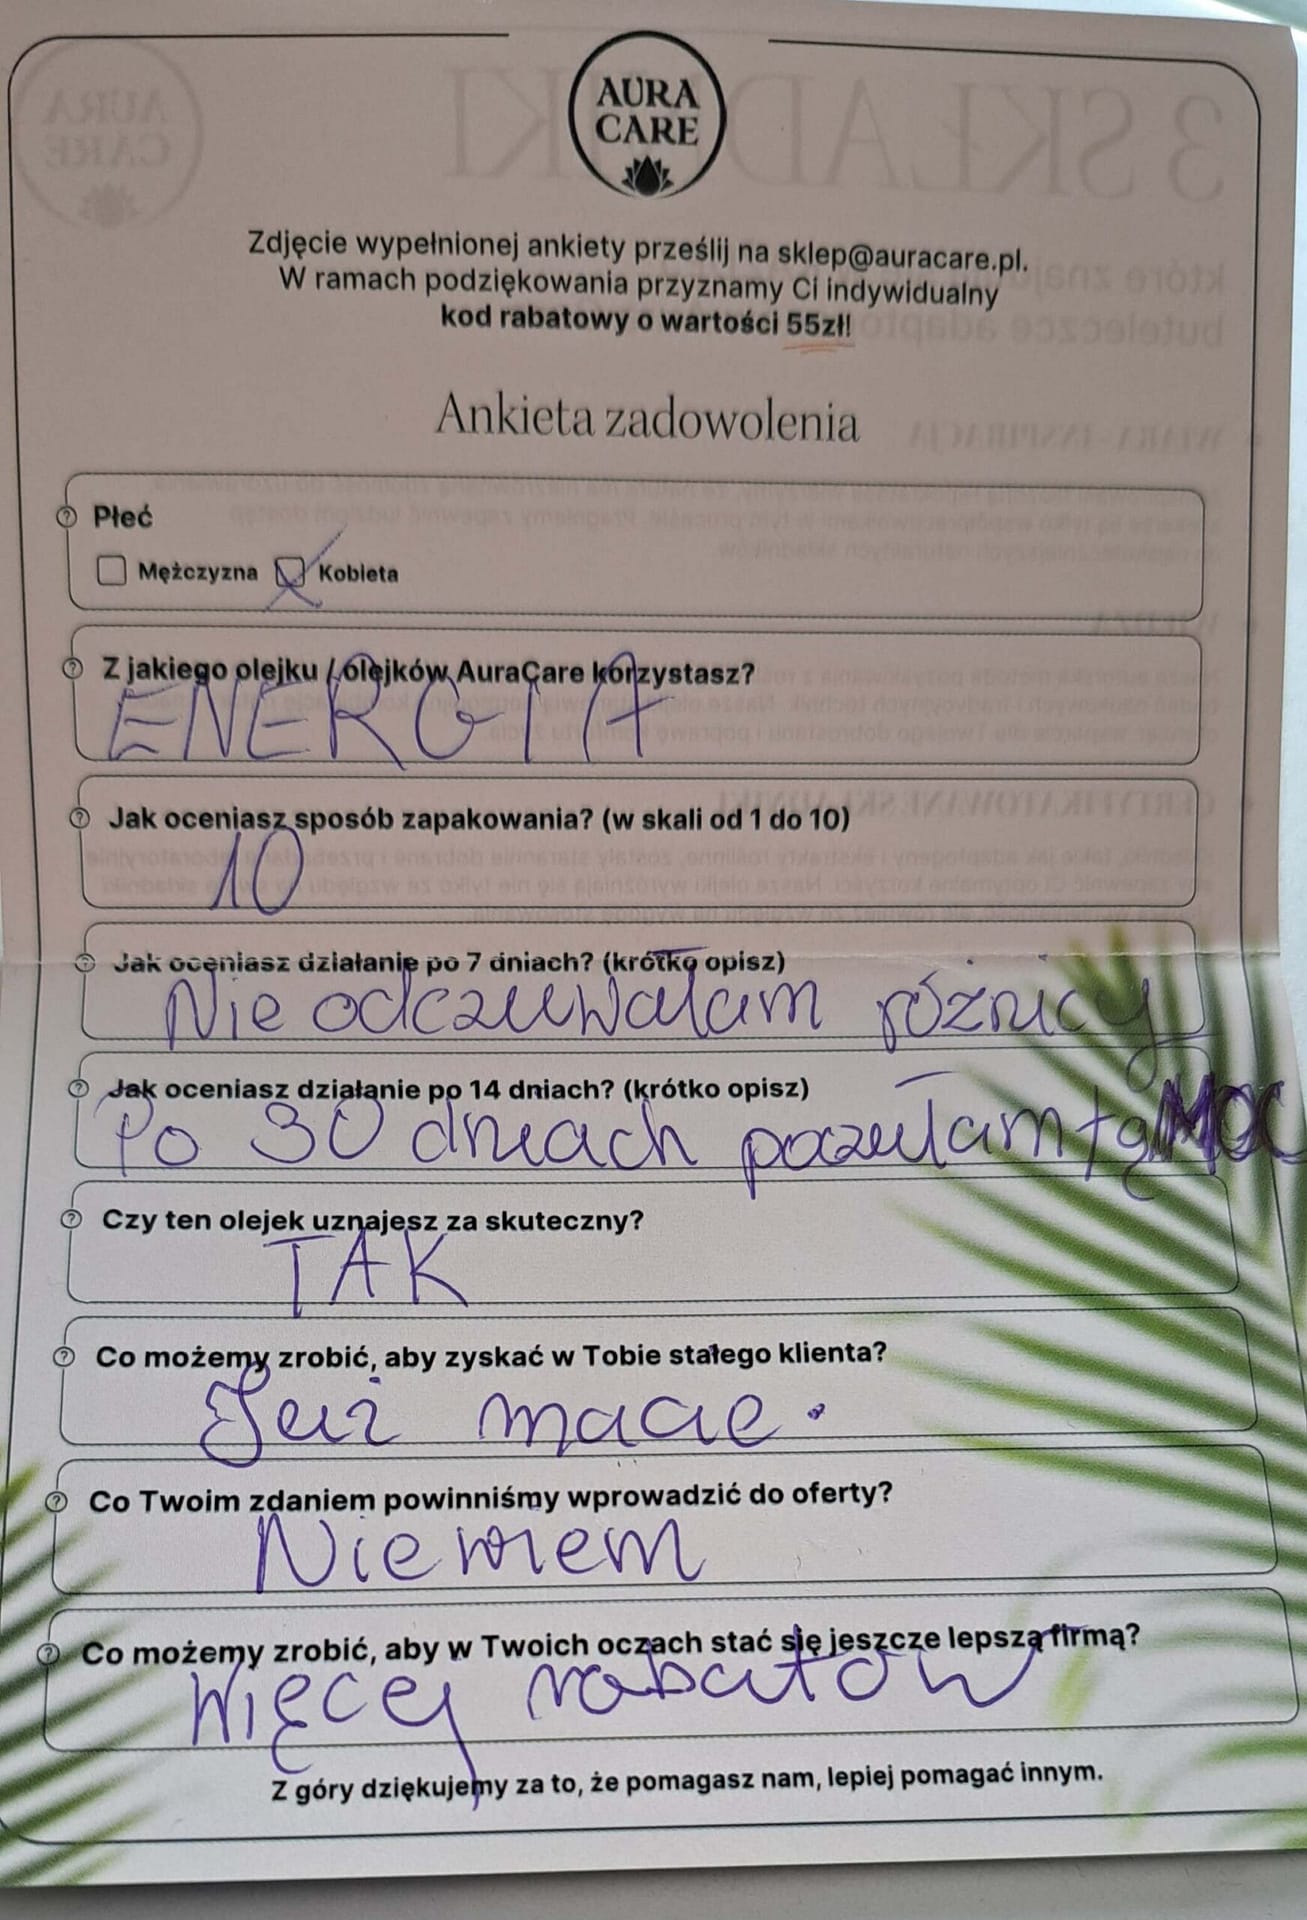 AURA
CARE
Zdjęcie wypełnionej ankiety prześlij na sklep@auracare.pl.
W ramach podziękowania przyznamy Ci indywidualny
kod rabatowy o wartości 55zł!
Ankieta zadowolenia
Płeć
Mężczyzna Kobieta
Z jakiego olejku / olejków AuraCare korzystasz?
ENERGIA
Jak oceniasz sposób zapakowania? (w skali od 1 do 10)
10
Jak oceniasz działanie po 7 dniach? (krótko opisz)
Nie odczuwałam różnicy
Jak oceniasz działanie po 14 dniach? (krótko opisz)
Po 30 dniach poczułam tą MOC
Czy ten olejek uznajesz za skuteczny?
TAK
Co możemy zrobić, aby zyskać w Tobie stałego klienta?
Już macie.
Co Twoim zdaniem powinniśmy wprowadzić do oferty?
Nie wiem
Co możemy zrobić, aby w Twoich oczach stać się jeszcze lepszą firmą?
Więcej rabatów
Z góry dziękujemy za to, że pomagasz nam, lepiej pomagać innym.